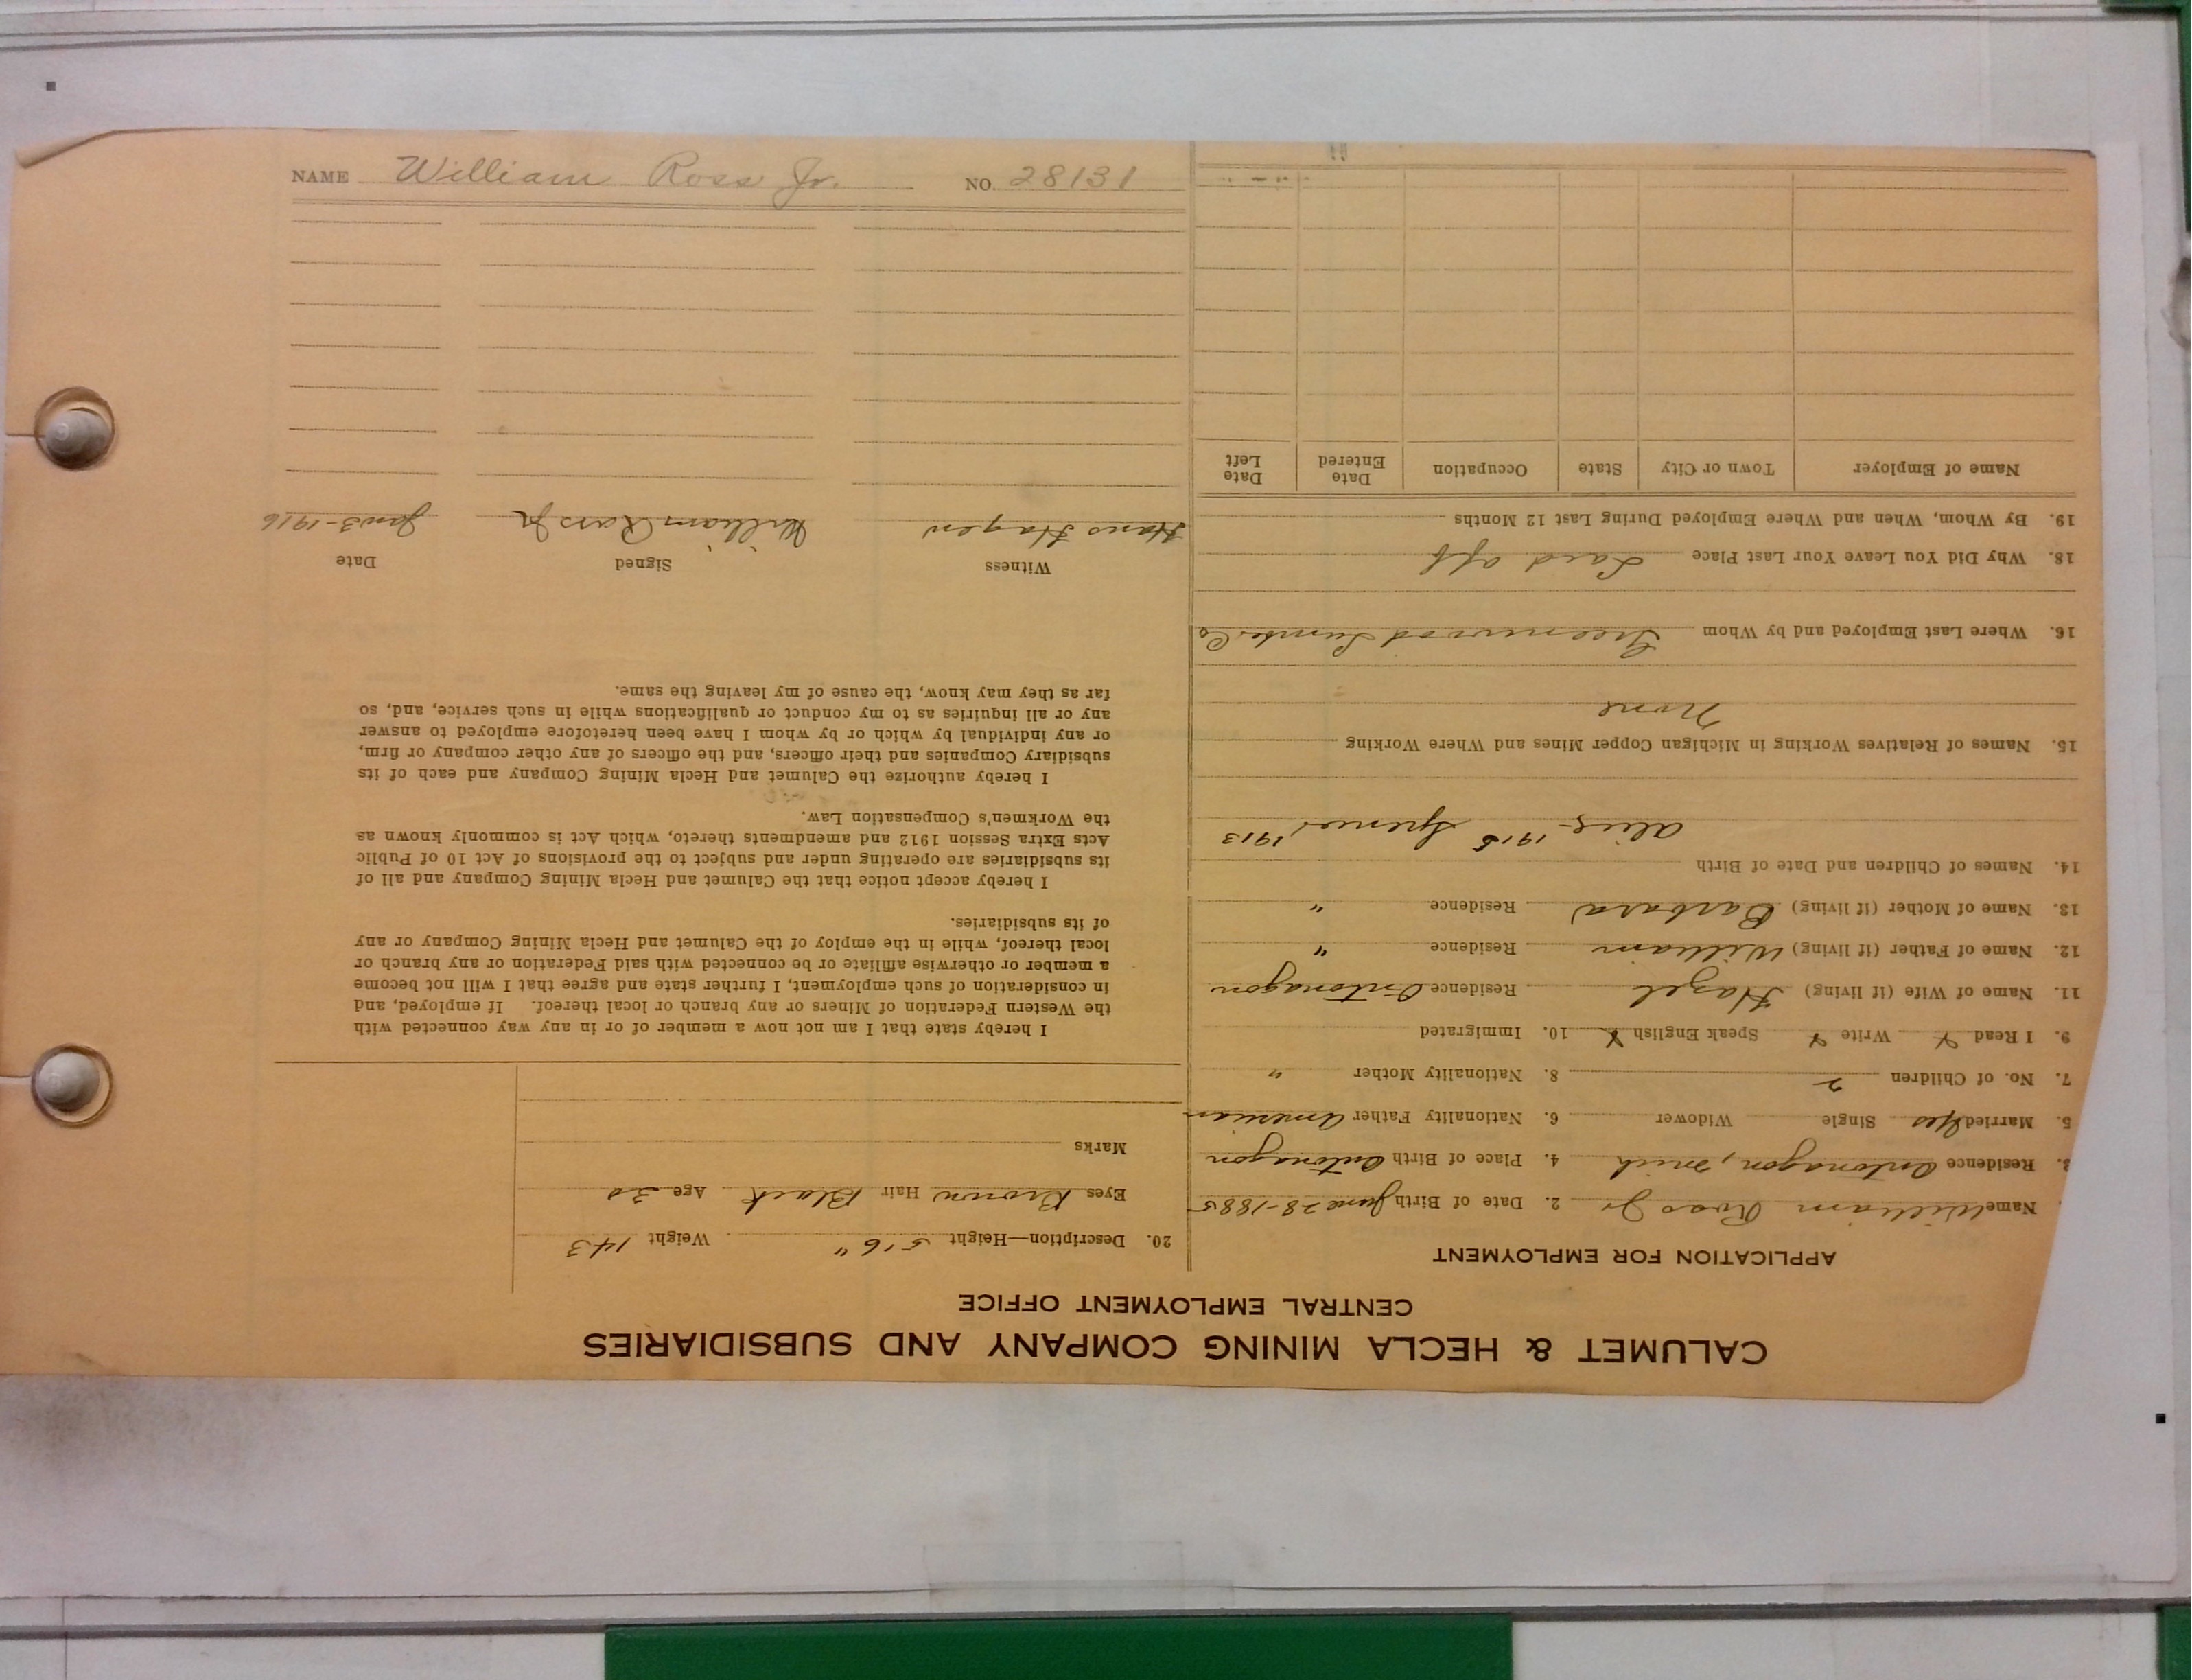 CALUMET & HECLA MINING COMPANY AND SUBSIDIARIES
CENTRAL EMPLOYMENT OFFICE
APPLICATION FOR EMPLOYMENT
Name William Ross Jr 2. Date of Birth June 28-1885
3. Residence Ontonagon, Mich 4. Place of Birth Ontonagon
5. Married Yes Single Widower 6. Nationality Father American
7. No. of Children 2 8. Nationality Mother "
9. I Read X Write X Speak English X 10. Immigrated
11. Name of Wife (if living) Hazel Residence Ontonagon
12. Name of Father (if living) William Residence "
13. Name of Mother (if living) Barbara Residence "
14. Names of Children and Date of Birth
1915 1913
15. Names of Relatives Working in Michigan Copper Mines and Where Working
None
16. Where Last Employed and by Whom Greenwood Lumber Co
18. Why Did You Leave Your Last Place Laid off
19. By Whom, When and Where Employed During Last 12 Months
Name of Employer Town or City State Occupation Date Entered Date Left
20. Description—Height 5'6" Weight 143
Eyes Brown Hair Black Age 30
Marks
I hereby state that I am not now a member of or in any way connected with
the Western Federation of Miners or any branch or local thereof. If employed, and
in consideration of such employment, I further state and agree that I will not become
a member or otherwise affiliate or be connected with said Federation or any branch or
local thereof, while in the employ of the Calumet and Hecla Mining Company or any
of its subsidiaries.
I hereby accept notice that the Calumet and Hecla Mining Company and all of
its subsidiaries are operating under and subject to the provisions of Act 10 of Public
Acts Extra Session 1912 and amendments thereto, which Act is commonly known as
the Workmen's Compensation Law.
I hereby authorize the Calumet and Hecla Mining Company and each of its
subsidiary Companies and their officers, and the officers of any other company or firm,
or any individual by which or by whom I have been heretofore employed to answer
any or all inquiries as to my conduct or qualifications while in such service, and, so
far as they may know, the cause of my leaving the same.
Witness Signed Date
Hans Hagen William Ross Jr Jan 3-1916
NAME William Ross Jr. NO. 28131